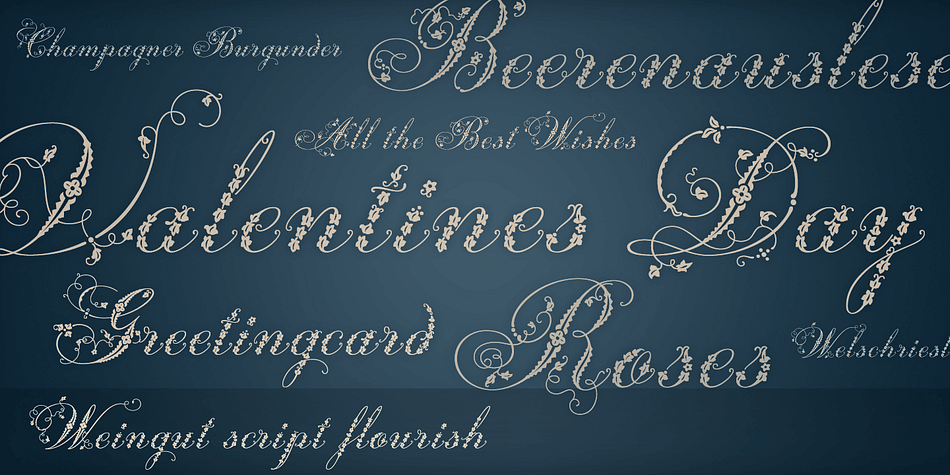 Champagner Burgunder
Beerenauslese
All the Best Wishes
Valentines Day
Greetingcard
Roses
Welschriesl
Weingut script flourish